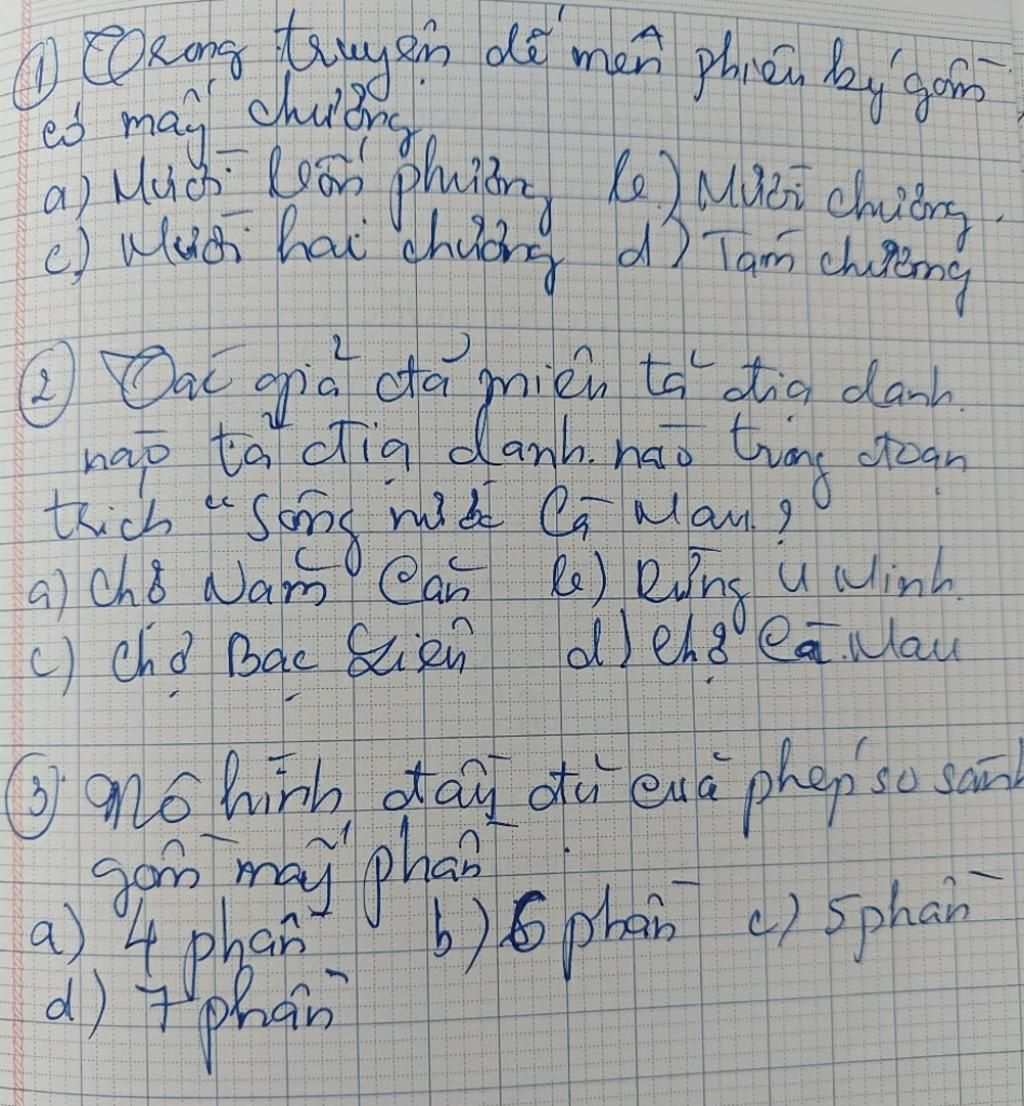 ① Trong truyện dế mèn phiêu lưu ký gồm
có mấy chương
a) Mười bốn phường b) Mười chương.
c) Mười hai chương d) Tám chương
② Tác giả đã miên tả địa danh
nào tả địa danh nào trong đoạn
trích "Sông nước Cà Mau?
a) Chợ Năm Căn b) Rừng U Minh
c) Chợ Bạc Liên d) Chợ Cà Mau
③ Mô hình đầy đủ cuả phép so sánh
gồm mấy phần
a) 4 phần b) 6 phần c) 5 phần
d) 7 phần